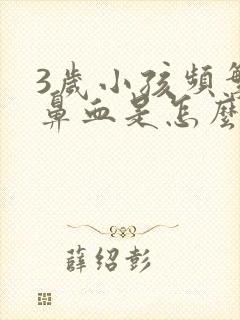 3歲小孩頻繁
鼻血是怎麼
薛紹彭